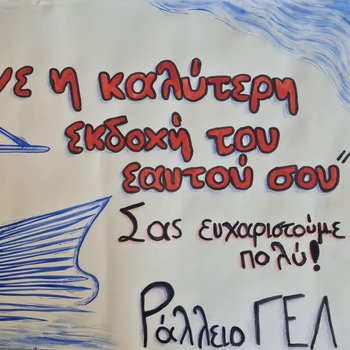 νε η καλύτερη
εκδοχή του
εαυτού σου"
Σας ευχαριστούμε
πολύ!
Ράλλειο ΓΕΛ